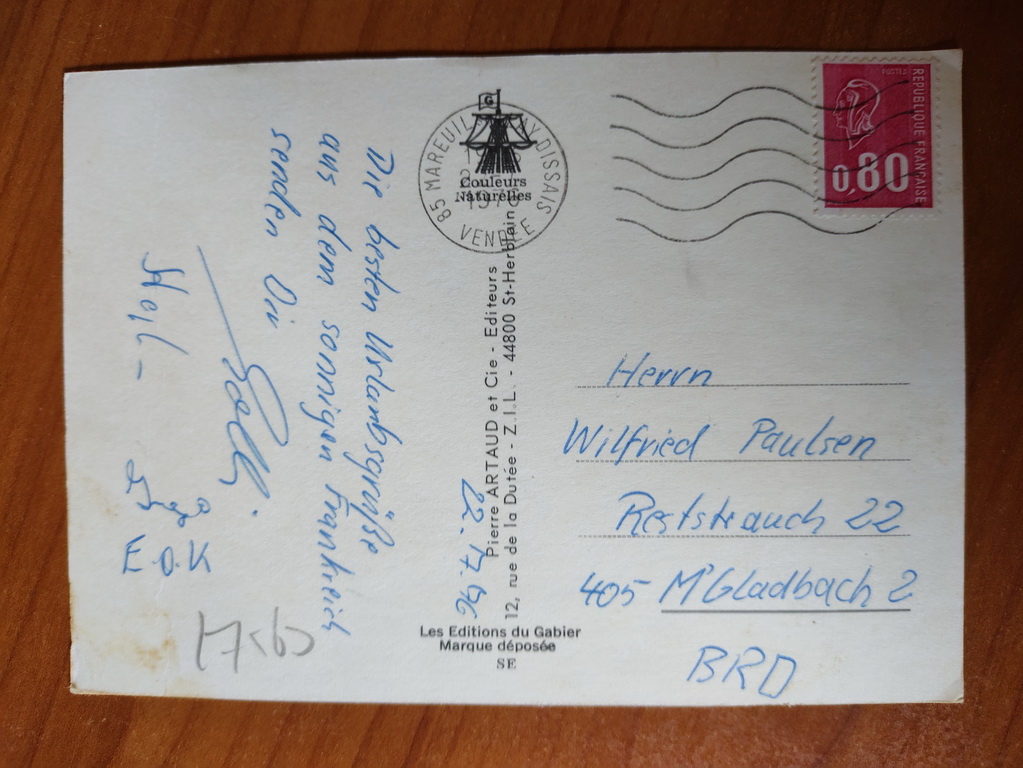 Die besten Urlaubsgrüße
aus dem sonnigen Frankreich
senden Dir
Heil-
E.O.K
22.7.76
Couleurs
Naturelles
85 MAREUIL DISSAIS
VENDEE
Pierre ARTAUD et Cie - Editeurs
12, rue de la Dutée - Z.I.L. - 44800 St-Herblain
Les Editions du Gabier
Marque déposée
SE
POSTES
REPUBLIQUE FRANÇAISE
0,80
Herrn
Wilfried Paulsen
Reststrauch 22
405 M'Gladbach 2
BRD